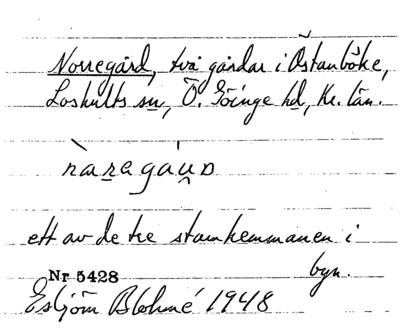 Norregård, två gårdar i Östanböke,
Loshults sn, Ö. Göinge hd, Kr. län.
ett av de tre stamhemmanen i
byn.
Nr 5428
Esbjörn Blohmé 1948